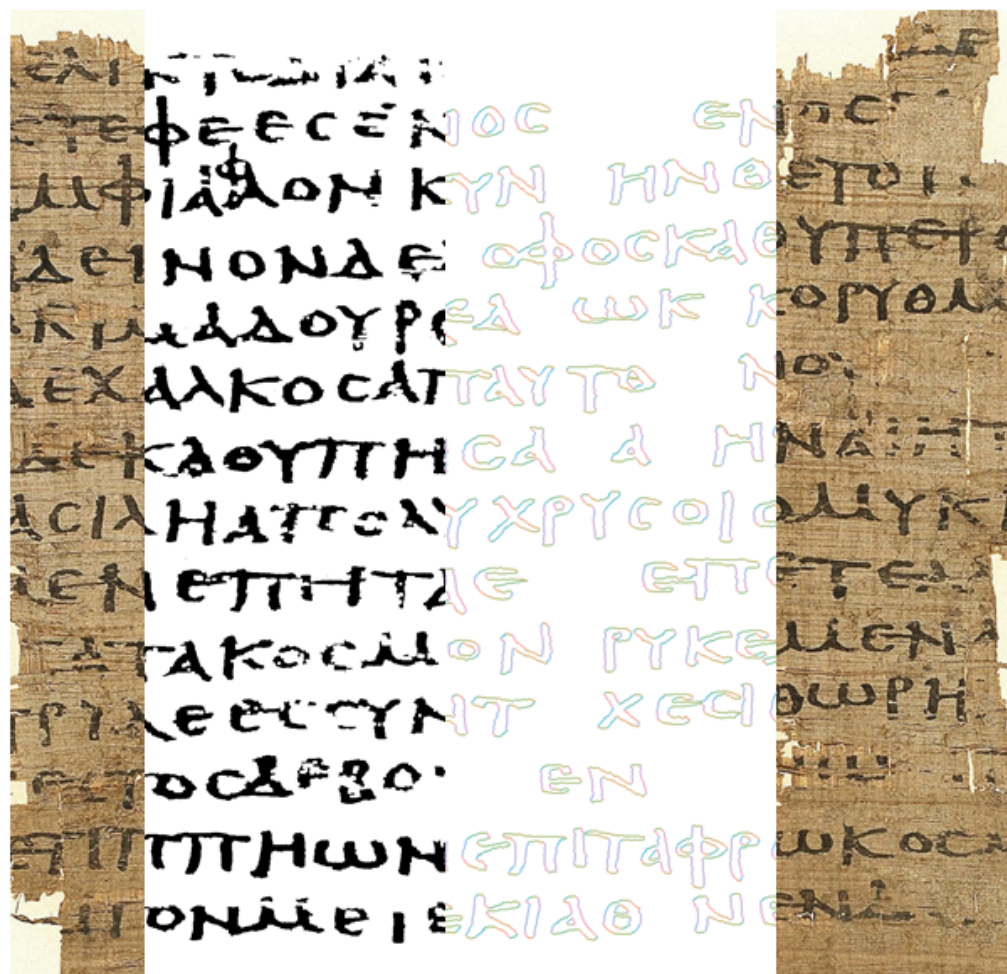 ΕΛΙΚΤΟΔΡΑ ΔΕ
ΣΤΕΦΕΕΣΕΝΟΣ ΕΝΟΣ
ΑΜΦΙΦΑΛΟΝΚΥΝ ΗΝΘΕΤΟΤ
ΔΕΙΝΟΝΔΕ ΟΦΟΣΚΑΘΥΠΕΡ
ΛΚΙΜΑΔΟΥΡΕΔ ΩΚ ΚΟΡΥΘΜ
ΔΕΧΑΛΚΟΣΑΠΤΑΥΤΟ ΝΟΝ
ΔΕΚΔΟΥΠΗΣΑ Α ΗΝΑΙΗΤ
ΑΣΙΛΗΑΠΟΛΥΧΡΥΣΟΙΟΜΥΚ
ΜΕΝΕΠΗΤΑΕ ΕΠΕΤΕΛΛ
ΑΤΑΚΟΣΜΟΝ ΡΥΚΕΜΕΝΑ
ΠΡΥΛΕΕΣΣΥΝΤ ΧΕΣΙΘΩΡΗ
ΕΣΤΟΣΔΕΒΟ ΕΝ
ΕΓΙΠΠΗΩΝΕΠΙΤΑΦΡΩΚΟΣΜ
ΓΟΝΜΕΤΕΚΙΑΘ ΝΕΝΔ